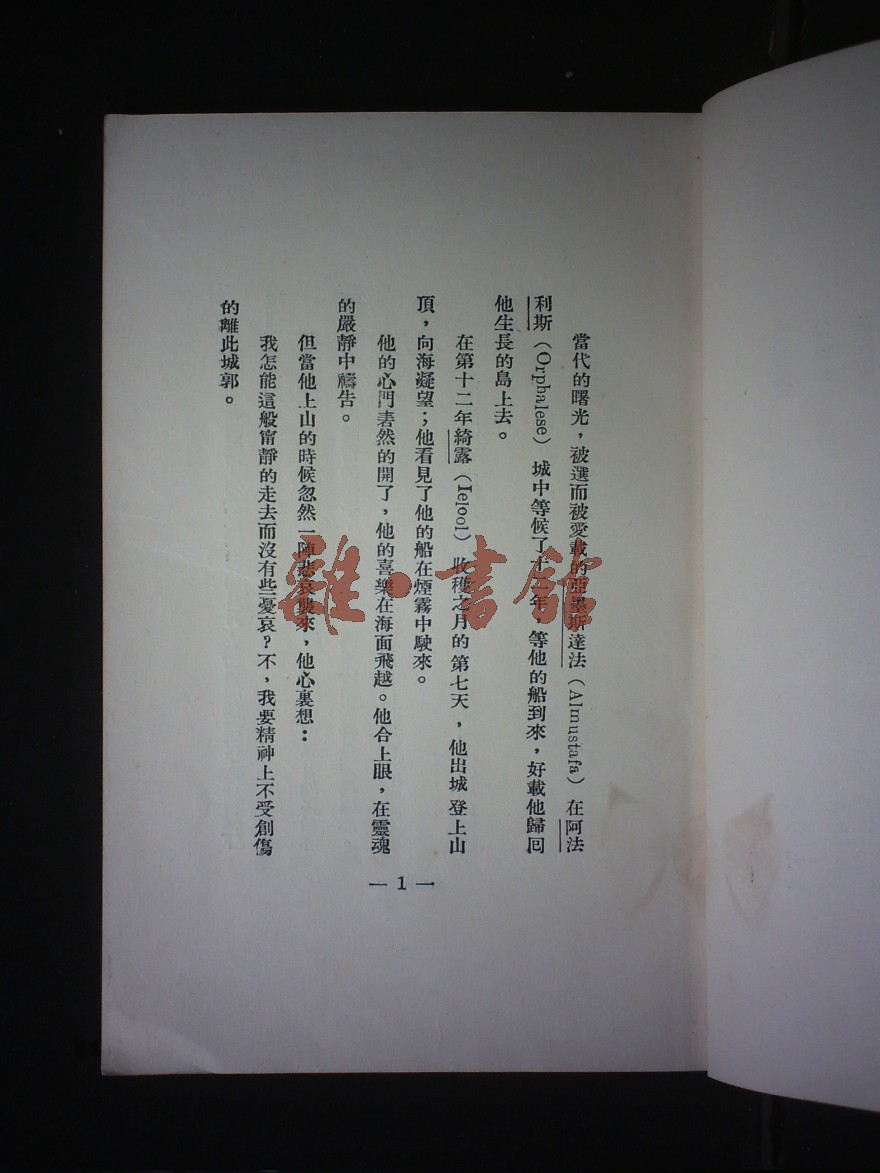 當代的曙光，被選而被愛戴的亞墨斯達法（Almustafa）在阿法
利斯（Orphalese）城中等候了十二年，等他的船到來，好載他歸回
他生長的島上去。
在第十二年綺露（Ielool）收穫之月的第七天，他出城登上山
頂，向海凝望；他看見了他的船在煙霧中駛來。
他的心門砉然的開了，他的喜樂在海面飛越。他合上眼，在靈魂
的嚴靜中禱告。
但當他上山的時候忽然一陣悲哀襲來，他心裏想：
我怎能這般甯靜的走去而沒有些憂哀？不，我要精神上不受創傷
的離此城郭。
— 1 —
雜·書館